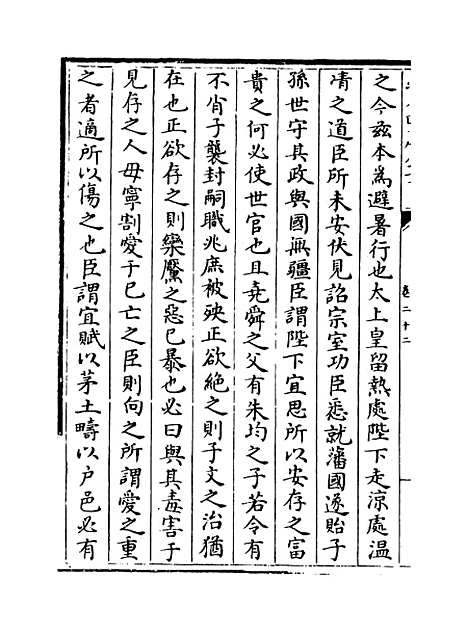 之今玆本為避暑行也太上皇留熱處陛下走涼處溫
凊之道臣所未安伏見詔宗室功臣悉就藩國遂貽子
孫世守其政與國無疆臣謂陛下宜思所以安存之富
貴之何必使世官也且堯舜之父有朱均之子若令有
不肖子襲封嗣職兆庶被殃正欲絶之則子文之治猶
在也正欲存之則欒黶之惡已暴也必曰與其毒害于
見存之人毋寧割愛于已亡之臣則向之所謂愛之重
之者適所以傷之也臣謂宜賦以茅土疇以户邑必有
卷二十二